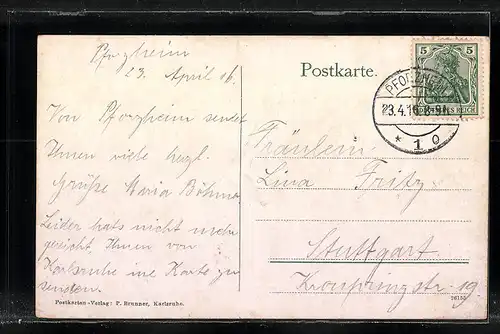 Pforzheim
23. April 16.
Postkarte.
5 5
DEUTSCHES REICH
PFORZHEIM
23.4.16
* 1 o
Von Pforzheim sendet
Ihnen viele herzl.
Grüße Maria Böhme
Leider hats nicht mehr
gereicht Ihnen von
Karlsruhe ine Karte zu
senden.
Fräulein
Lina Fritz
Stuttgart.
Kronprinzstr. 19.
Postkarten-Verlag: P. Brunner, Karlsruhe.